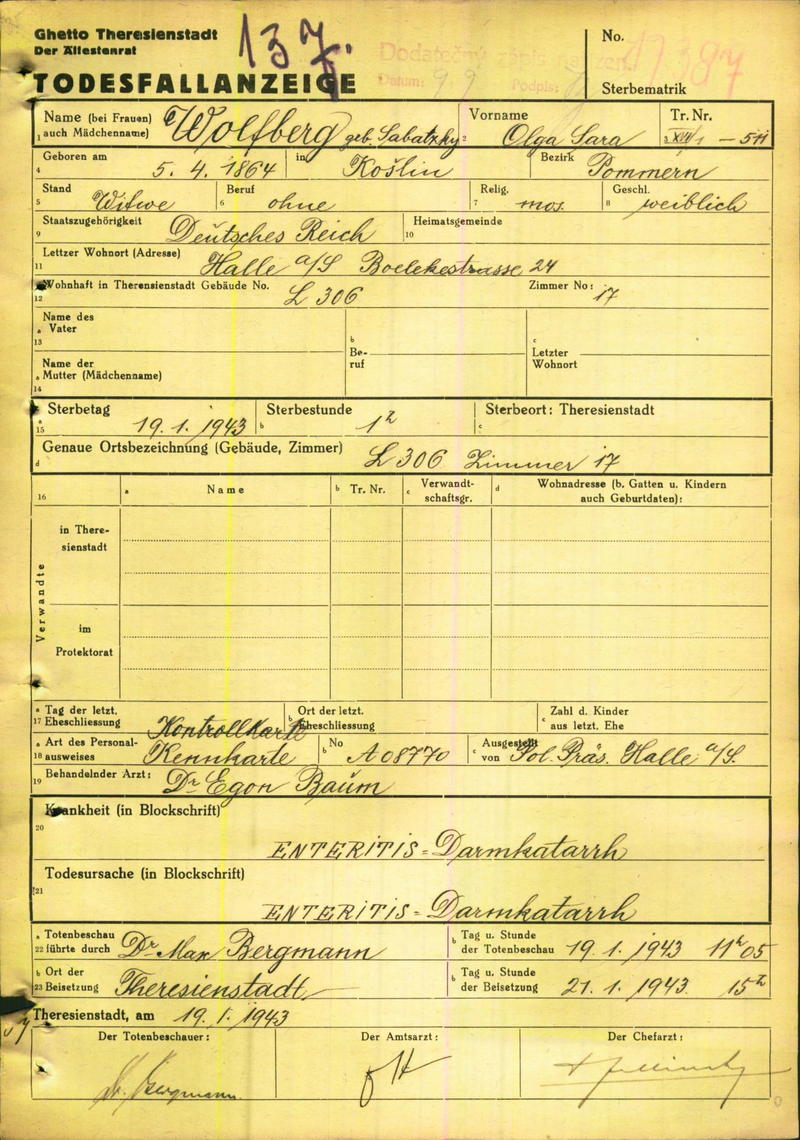 Ghetto Theresienstadt
Der Ältestenrat
137.
Dodatečný zápis
Datum: 9 9 Podpis:
No.
TODESFALLANZEIGE
Sterbematrik
Name (bei Frauen) Wolfberg geb. Sabatzky Vorname Tr. Nr.
1 auch Mädchenname) 2 Olga Sara 3 XVII/1 — 511
Geboren am in Bezirk
4 5. 4. 1864 Košlin Pommern
Stand Beruf Relig. Geschl.
5 Witwe 6 ohne 7 mos. 8 weiblich
Staatszugehörigkeit Deutsches Reich Heimatsgemeinde
9 10
Lettzer Wohnort (Adresse)
11 Halle a/S Boelckestrasse 24
Wohnhaft in Therensienstadt Gebäude No. L 306 Zimmer No: 17
12
Name des
a Vater
13
b Be-
ruf
c Letzter
Wohnort
Name der
a Mutter (Mädchenname)
14
a Sterbetag Sterbestunde Sterbeort: Theresienstadt
15 19. 1. 1943 b 1h c
Genaue Ortsbezeichnung (Gebäude, Zimmer)
d L 306 Zimmer 17
16 a Name b Tr. Nr. c Verwandt-
schaftsgr. d Wohnadresse (b. Gatten u. Kindern
auch Geburtdaten):
Verwandte
in There-
sienstadt
im
Protektorat
a Tag der letzt. b Ort der letzt. c Zahl d. Kinder
17 Eheschliessung Eheschliessung aus letzt. Ehe
Kontrollkarte
a Art des Personal- b No c Ausgestellt
18 ausweises Kennkarte A 08770 von Pol. Präs. Halle a/S.
19 Behandelnder Arzt: Dr Egon Baum
Krankheit (in Blockschrift)
20 ENTERITIS = Darmkatarrh
Todesursache (in Blockschrift)
21 ENTERITIS = Darmkatarrh
a Totenbeschau b Tag u. Stunde
22 führte durch Dr Max Bergmann der Totenbeschau 19. 1. 1943 11h 05
b Ort der b Tag u. Stunde
23 Beisetzung Theresienstadt der Beisetzung 21. 1. 1943 15h
Theresienstadt, am 19. 1. 1943
Der Totenbeschauer: Der Amtsarzt: Der Chefarzt:
Dr. Bergmann.